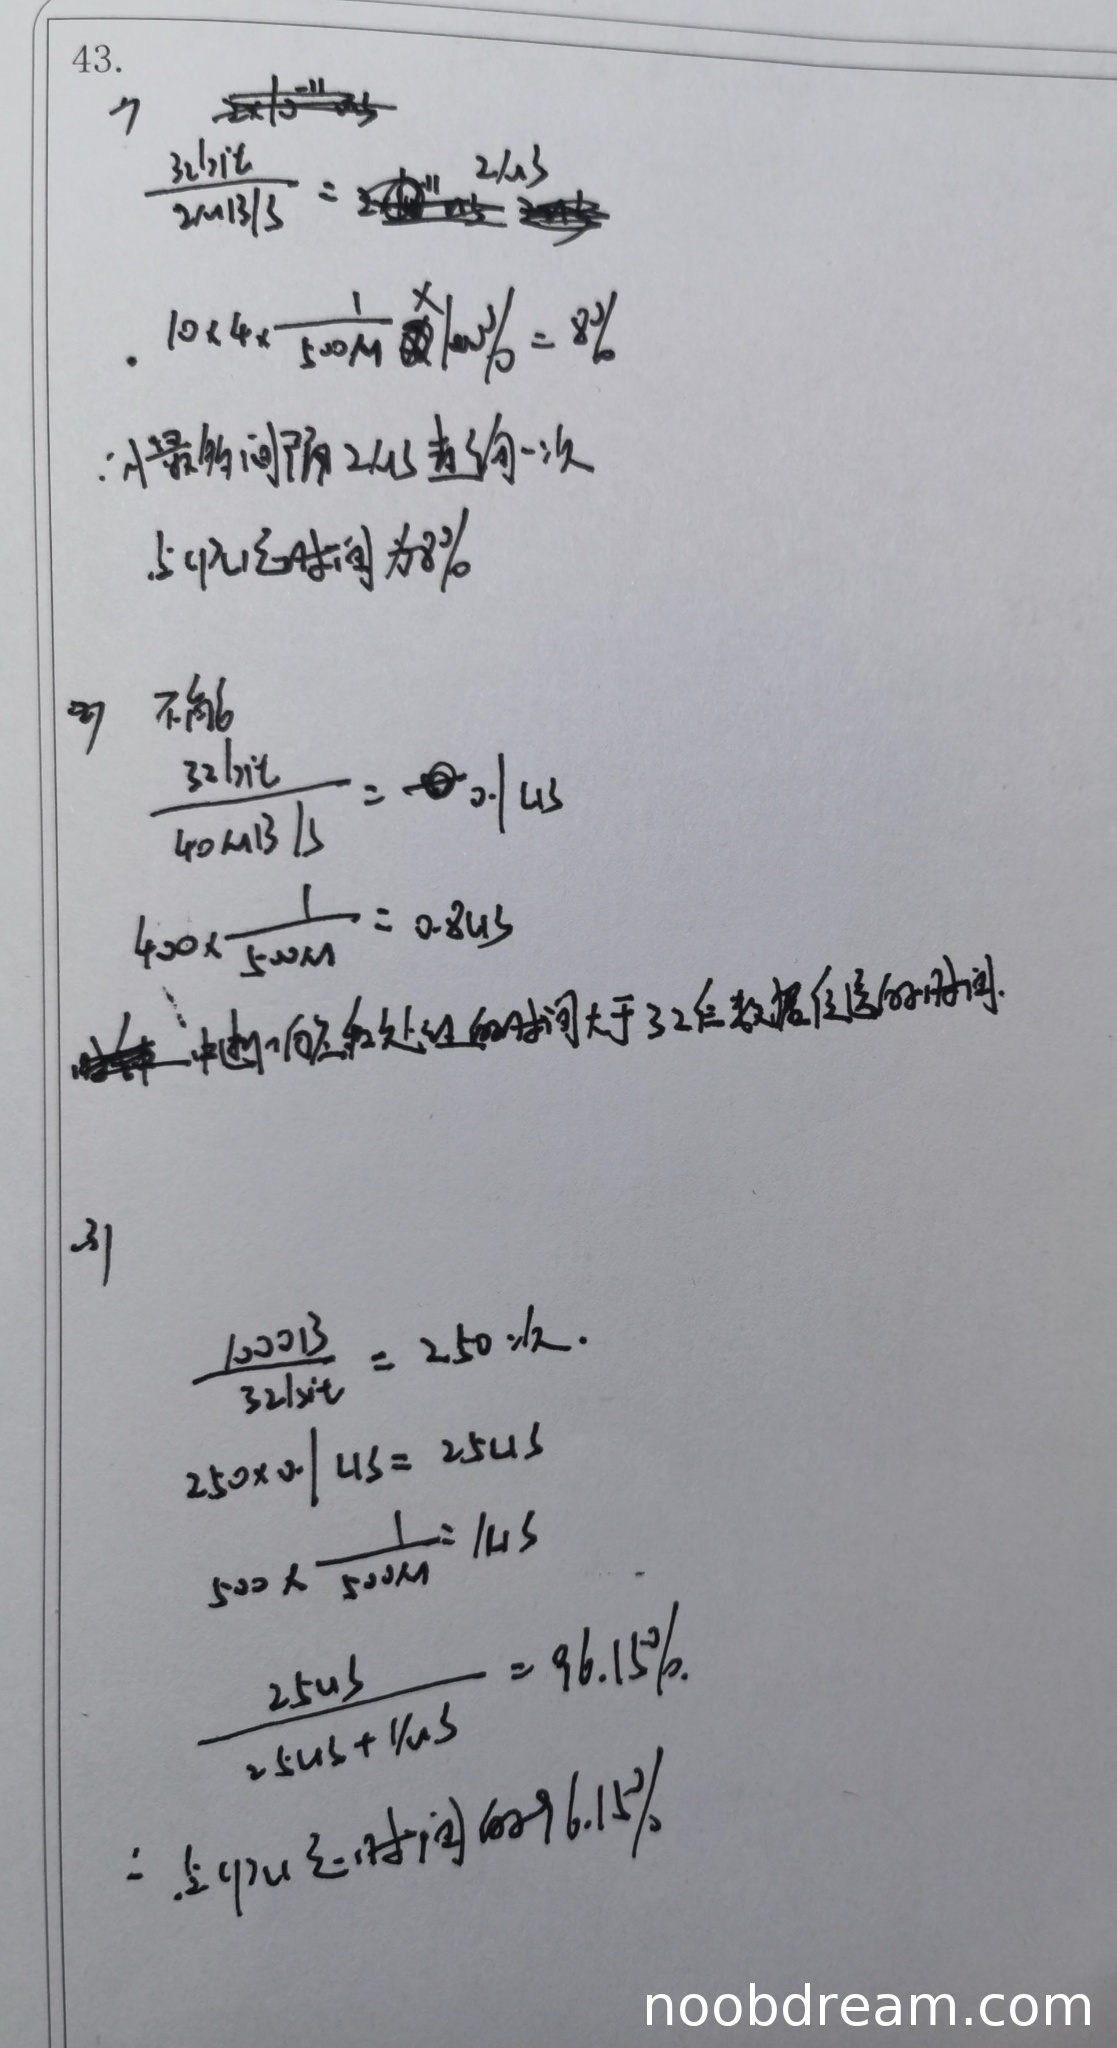 43.
1)
32bit / 2MB/s = 2μs
10×4×1/500M ×100% = 8%
∴ 最多间隔2μs查询一次
占CPU总时间为8%
2) 不能够
32bit / 40MB/s = 0.1us
400×1/500M = 0.8us
中断响应和处理的时间大于32位数据传送的时间.
3)
1000B / 32bit = 250次.
250×0.1us = 25us
500×1/500M = 1us
25us / 25us+1μs = 96.15%.
∴ 占CPU总时间的96.15%
noobdream.com